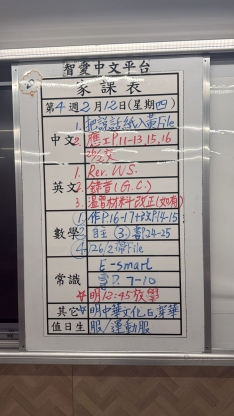 智愛中文平台
家課表
第4週2月12日(星期四)
中文
1. 把謀話紙入黃File
2. 應工P.11-13,15,16
英文
1. Rev. WS.
2. 錄音(G.C.)
3. 溫習材料改正(如有)
數學
1. 作P.16-17+8文P.14-15
2. 自主 ③ 書P.24-25
④ 26/2帶File
常識
E-smart
書P.7-10
明12:45放學
其它
明中華文化日,穿華
值日生
服/運動服